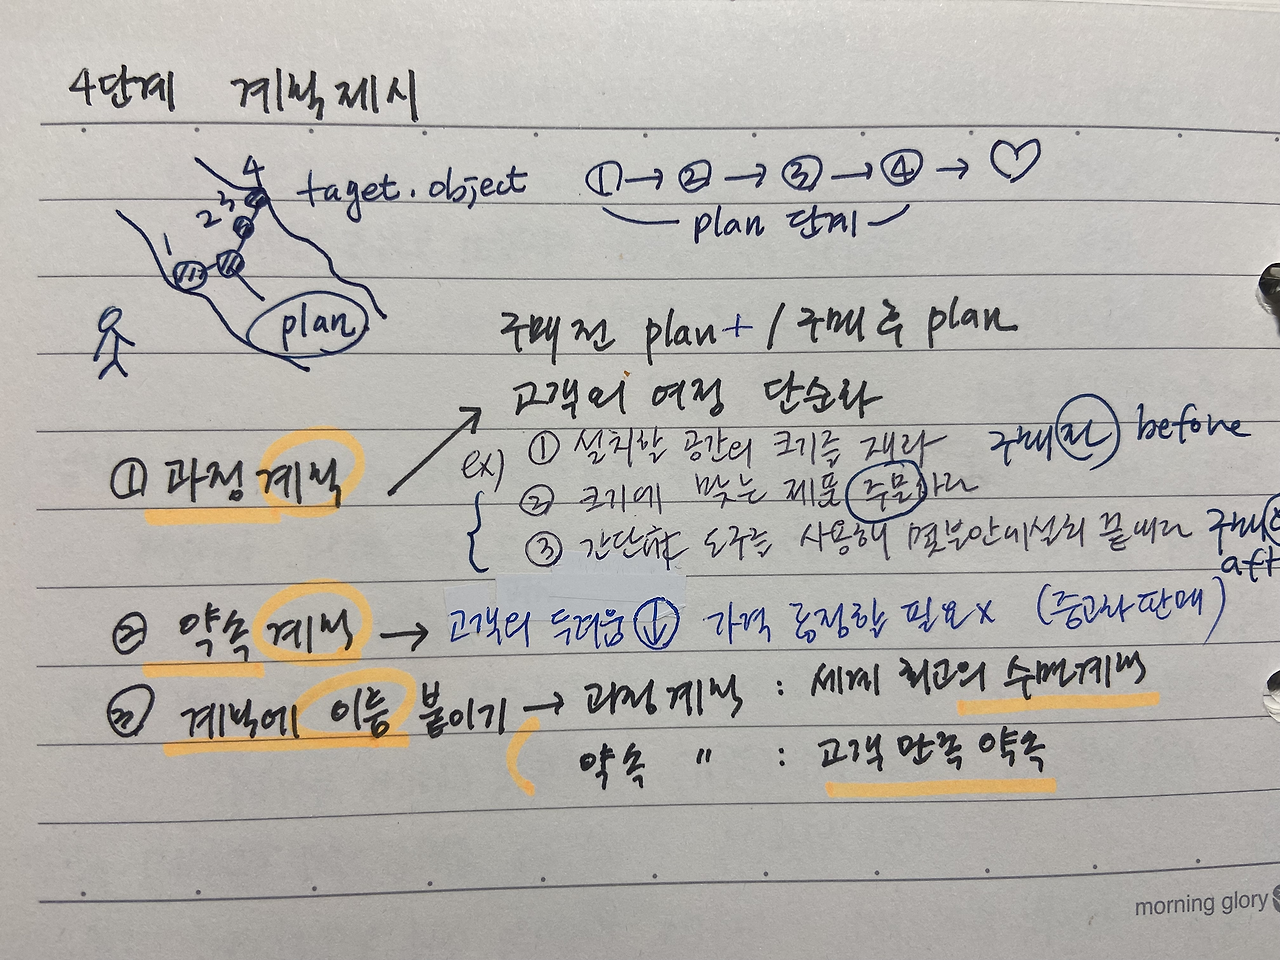 4단계 계획제시
4
3
2
1
taget.object
① → ② → ③ → ④ → ♡
plan 단계
plan
구매 전 plan + / 구매 후 plan
고객의 여정 단순화
① 과정계획
ex) ① 설치할 공간의 크기를 재라 구매전 before
② 크기에 맞는 제품 주문하라
③ 간단한 도구를 사용해 몇분안에설치 끝내라 구매
aft
② 약속계획 → 고객의 두려움 ↓ 가격 흥정할 필요 x (중고차판매)
③ 계획에 이름 붙이기 → 과정계획 : 세계 최고의 수면계획
약속 〃 : 고객 만족 약속
morning glory